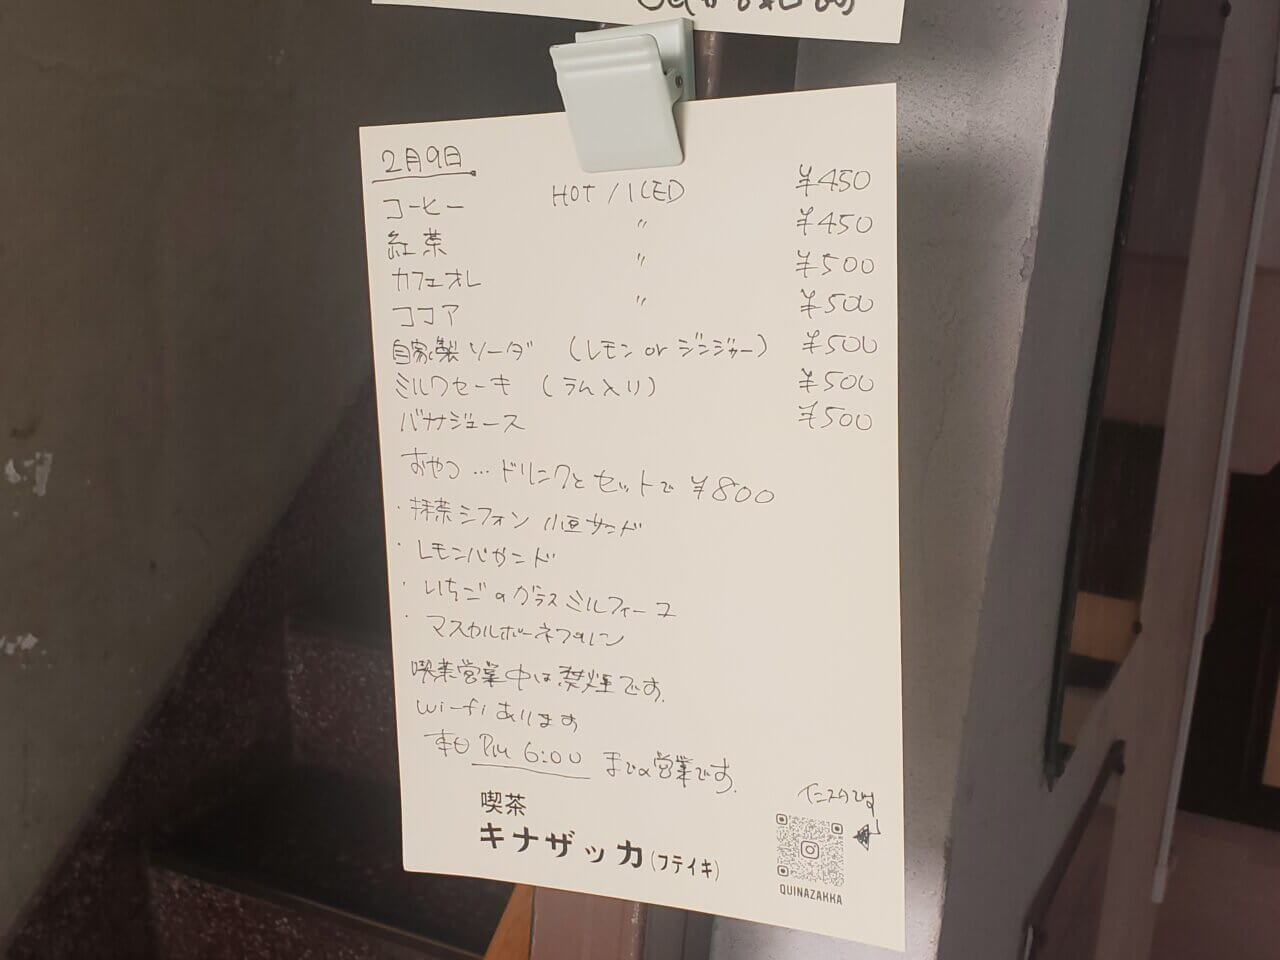 2月9日
コーヒー HOT / ICED ¥450
紅茶 〃 ¥450
カフェオレ 〃 ¥500
ココア 〃 ¥500
自家製ソーダ (レモン or ジンジャー) ¥500
ミルクセーキ (ラム入り) ¥500
バナナジュース ¥500
おやつ…ドリンクとセットで ¥800
・抹茶シフォン 小豆サンド
・レモンバサンド
・いちごのグラスミルフィーユ
・マスカルポーネプリン
喫茶営業中は禁煙です.
wi-fiあります
本日 PM 6:00 までの営業です.
インスタです
喫茶
キナザッカ(フテイキ)
QUINAZAKKA